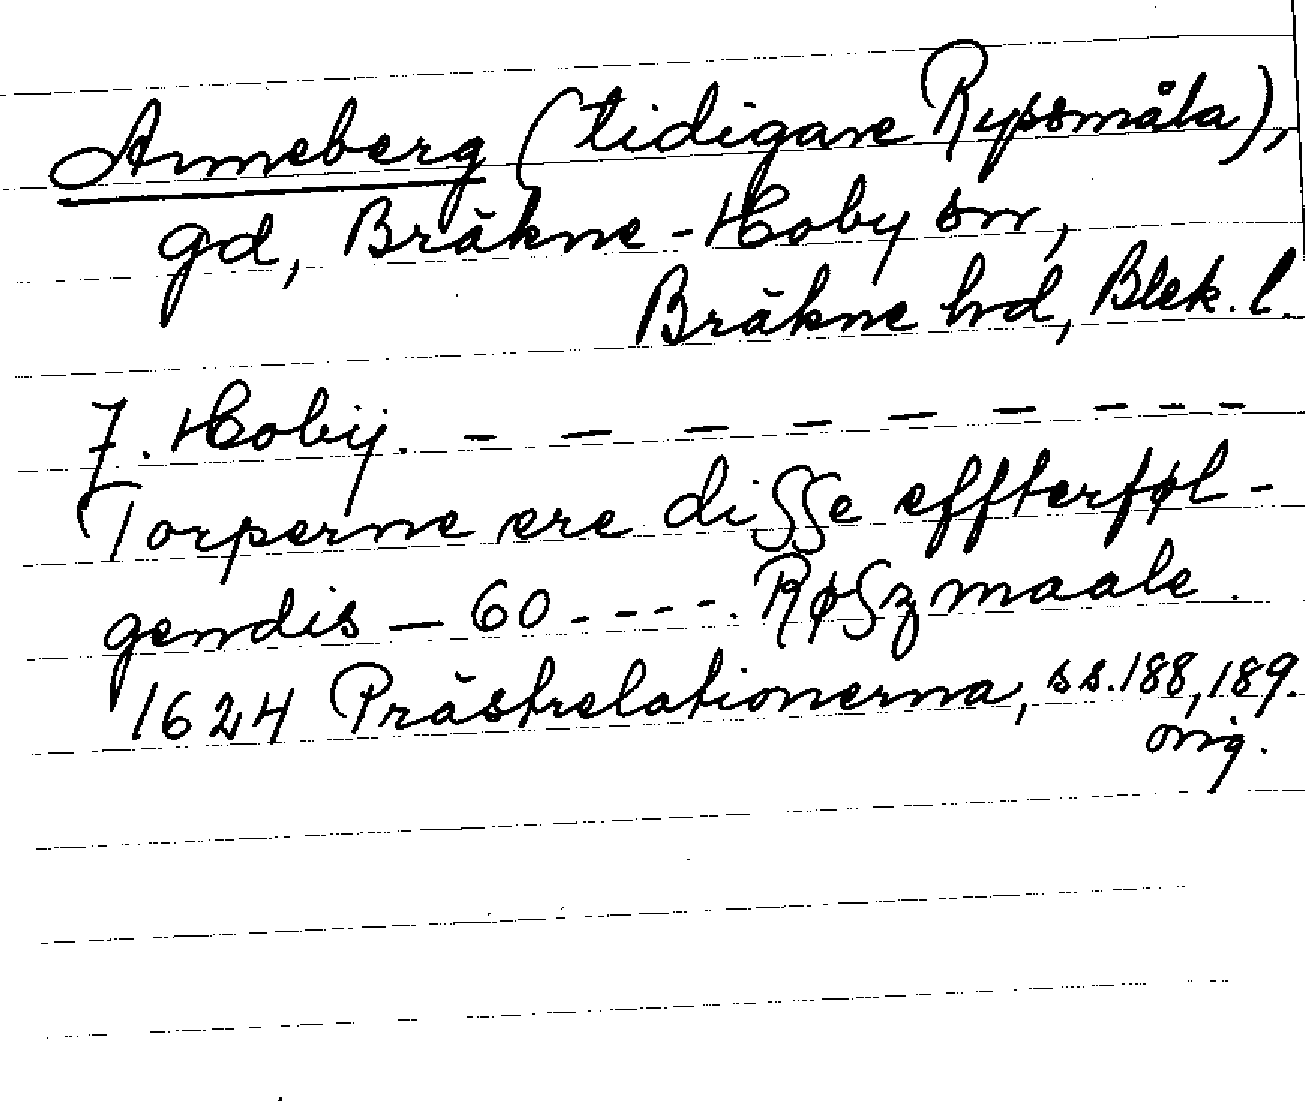 Anneberg (tidigare Rypsmåla),
gd, Bräkne-Hoby sn,
Bräkne hd, Blek. l.
J. Hobÿ. - - - - - - - - -
Torperne ere disse effterføl-
gendis — 60 - - - -. Røszmaale.
1624 Prästrelationerna, ss. 188, 189.
orig.